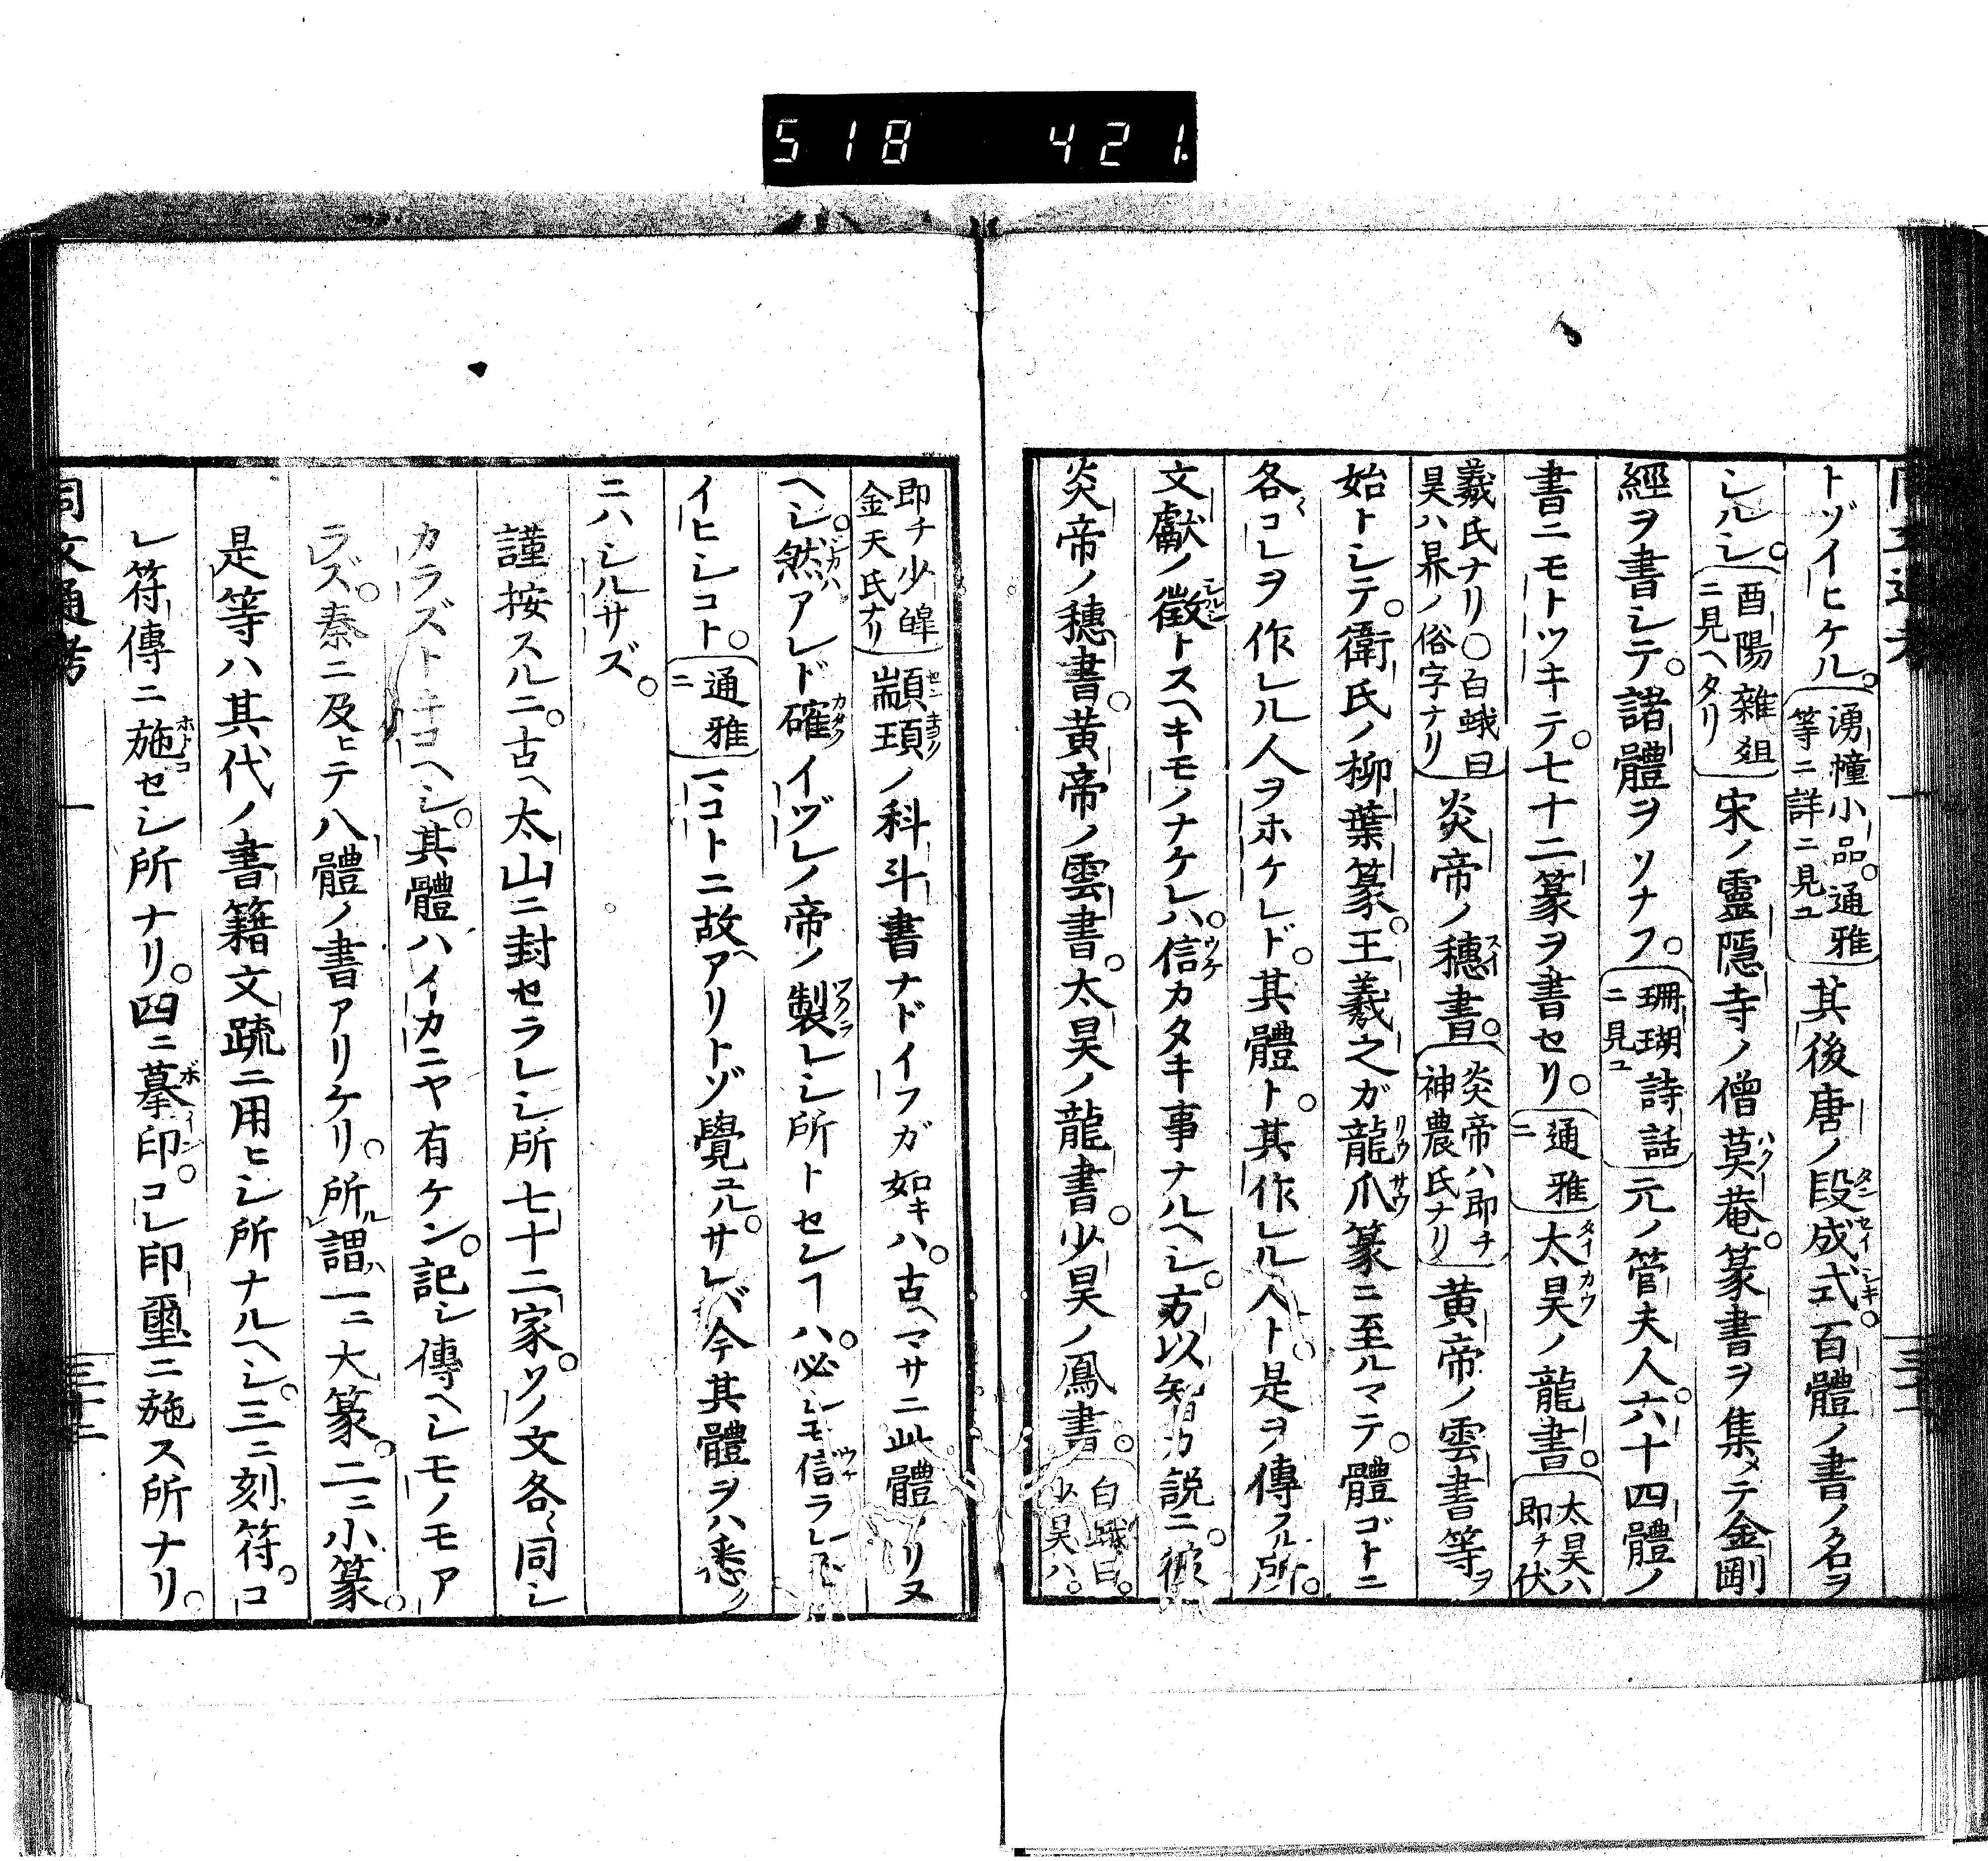 518 421
同文通考 一
トゾイヒケル。湧幢小品。通雅等ニ詳ニ見ユ其後唐ノ段成式。百體ノ書ノ名ヲ
シルシ。酉陽雜爼ニ見ヘタリ宋ノ靈隱寺ノ僧莫菴。篆書ヲ集メテ金剛
經ヲ書シテ。諸體ヲソナフ。珊瑚詩話ニ見ユ元ノ管夫人。六十四體ノ
書ニモトツキテ。七十二篆ヲ書セリ。通雅ニ太昊ノ龍書。太昊ハ即チ伏
羲氏ナリ〇白蛾曰昊ハ昦ノ俗字ナリ炎帝ノ穗書。炎帝ハ即チ神農氏ナリ黄帝ノ雲書等ヲ
始トシテ。衛氏ノ柳葉篆。王羲之ガ龍爪篆ニ至ルマテ。體ゴトニ
各〻コレヲ作レル人ヲホケレド。其體ト。其作レル人ト。是ヲ傳フル所。
文獻ノ徵トスヘキモノナケレハ。信カタキ事ナルヘシ。方以智カ説ニ。彼
炎帝ノ穗書。黄帝ノ雲書。太昊ノ龍書。少昊ノ鳳書。白蛾曰。少昊ハ。
即チ少皥金天氏ナリ顓頊ノ科斗書ナドイフガ如キハ。古ヘマサニ此體アリヌ
ヘシ。然アレド確イヅレノ帝ノ製レシ所トセレヿハ。必シモ信ラレズト
イヒシコト。通雅ニマコトニ故アリトゾ覺ユル。サレバ今其體ヲハ悉ク
ニハシルサズ。
謹按スルニ。古ヘ太山ニ封セラレシ所七十二家。ソノ文各〻同シ
カラズトキコヘシ。其體ハイカニヤ有ケン。記シ傳ヘシモノモア
ラズ。秦ニ及ヒテ八體ノ書アリケリ。所謂一ニ大篆。二ニ小篆。
是等ハ其代ノ書籍文疏ニ用ヒシ所ナルヘシ。三ニ刻符。コ
レ符傳ニ施セシ所ナリ。四ニ摹印。コレ印璽ニ施ス所ナリ。
同文通考 一